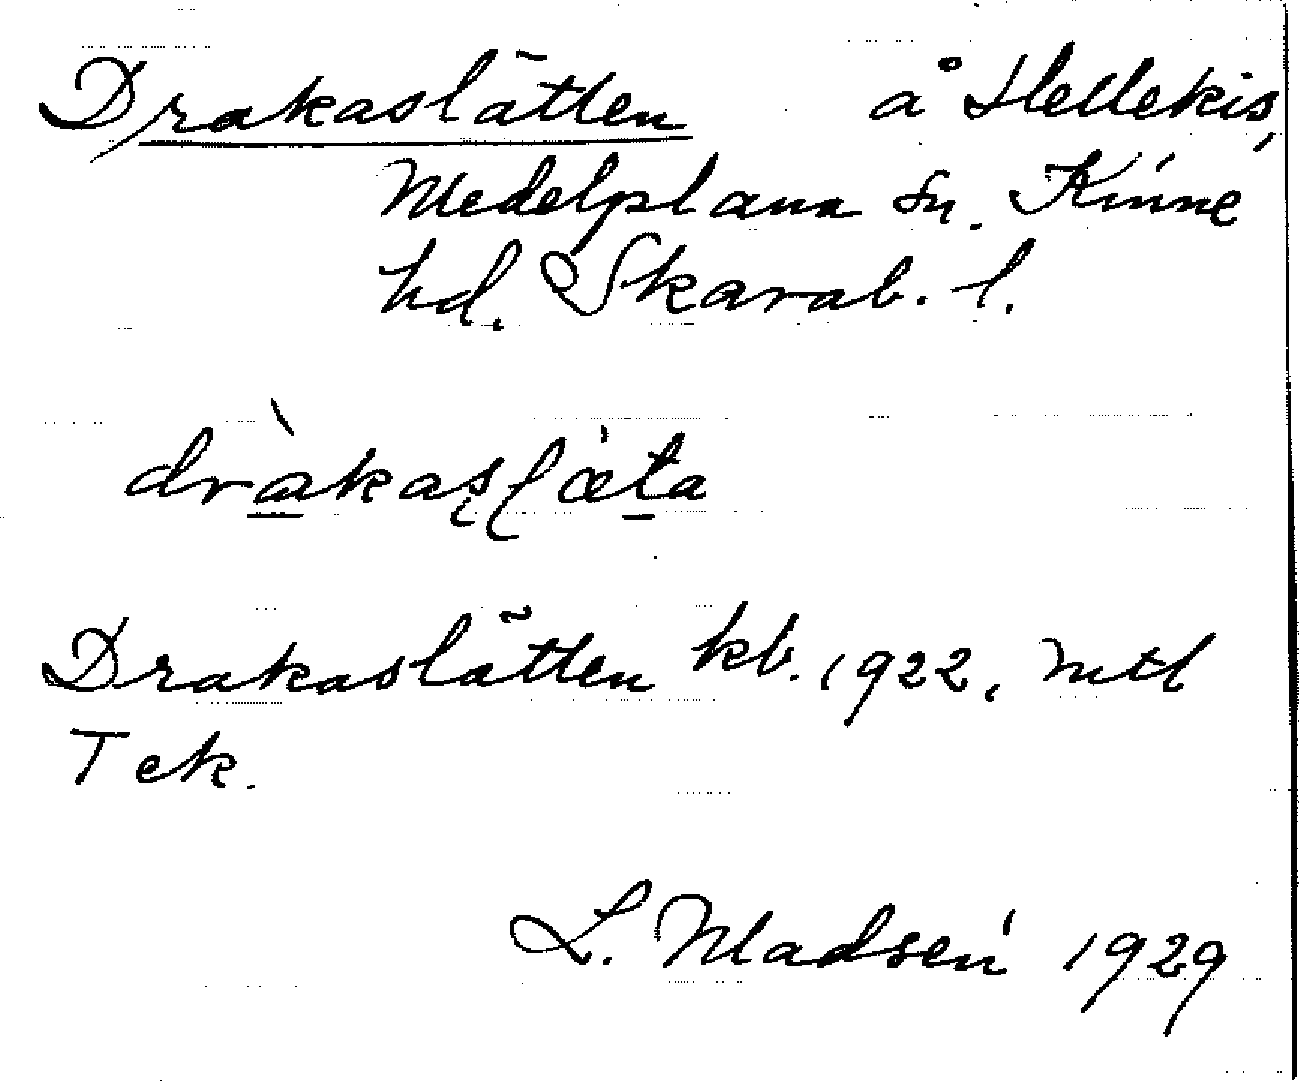 Drakaslätten å Hellekis,
Medelplana sn. Kinne
hd. Skarab. l.
dràkasl̨æ̀ta
Drakaslätten kb. 1922, mtl
Tek.
L. Madsén 1929